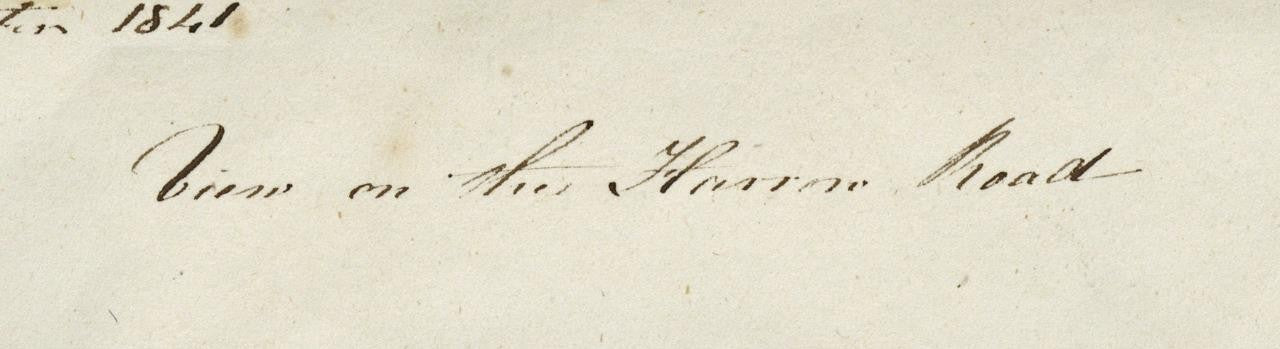 1841
View on the Harrow Road